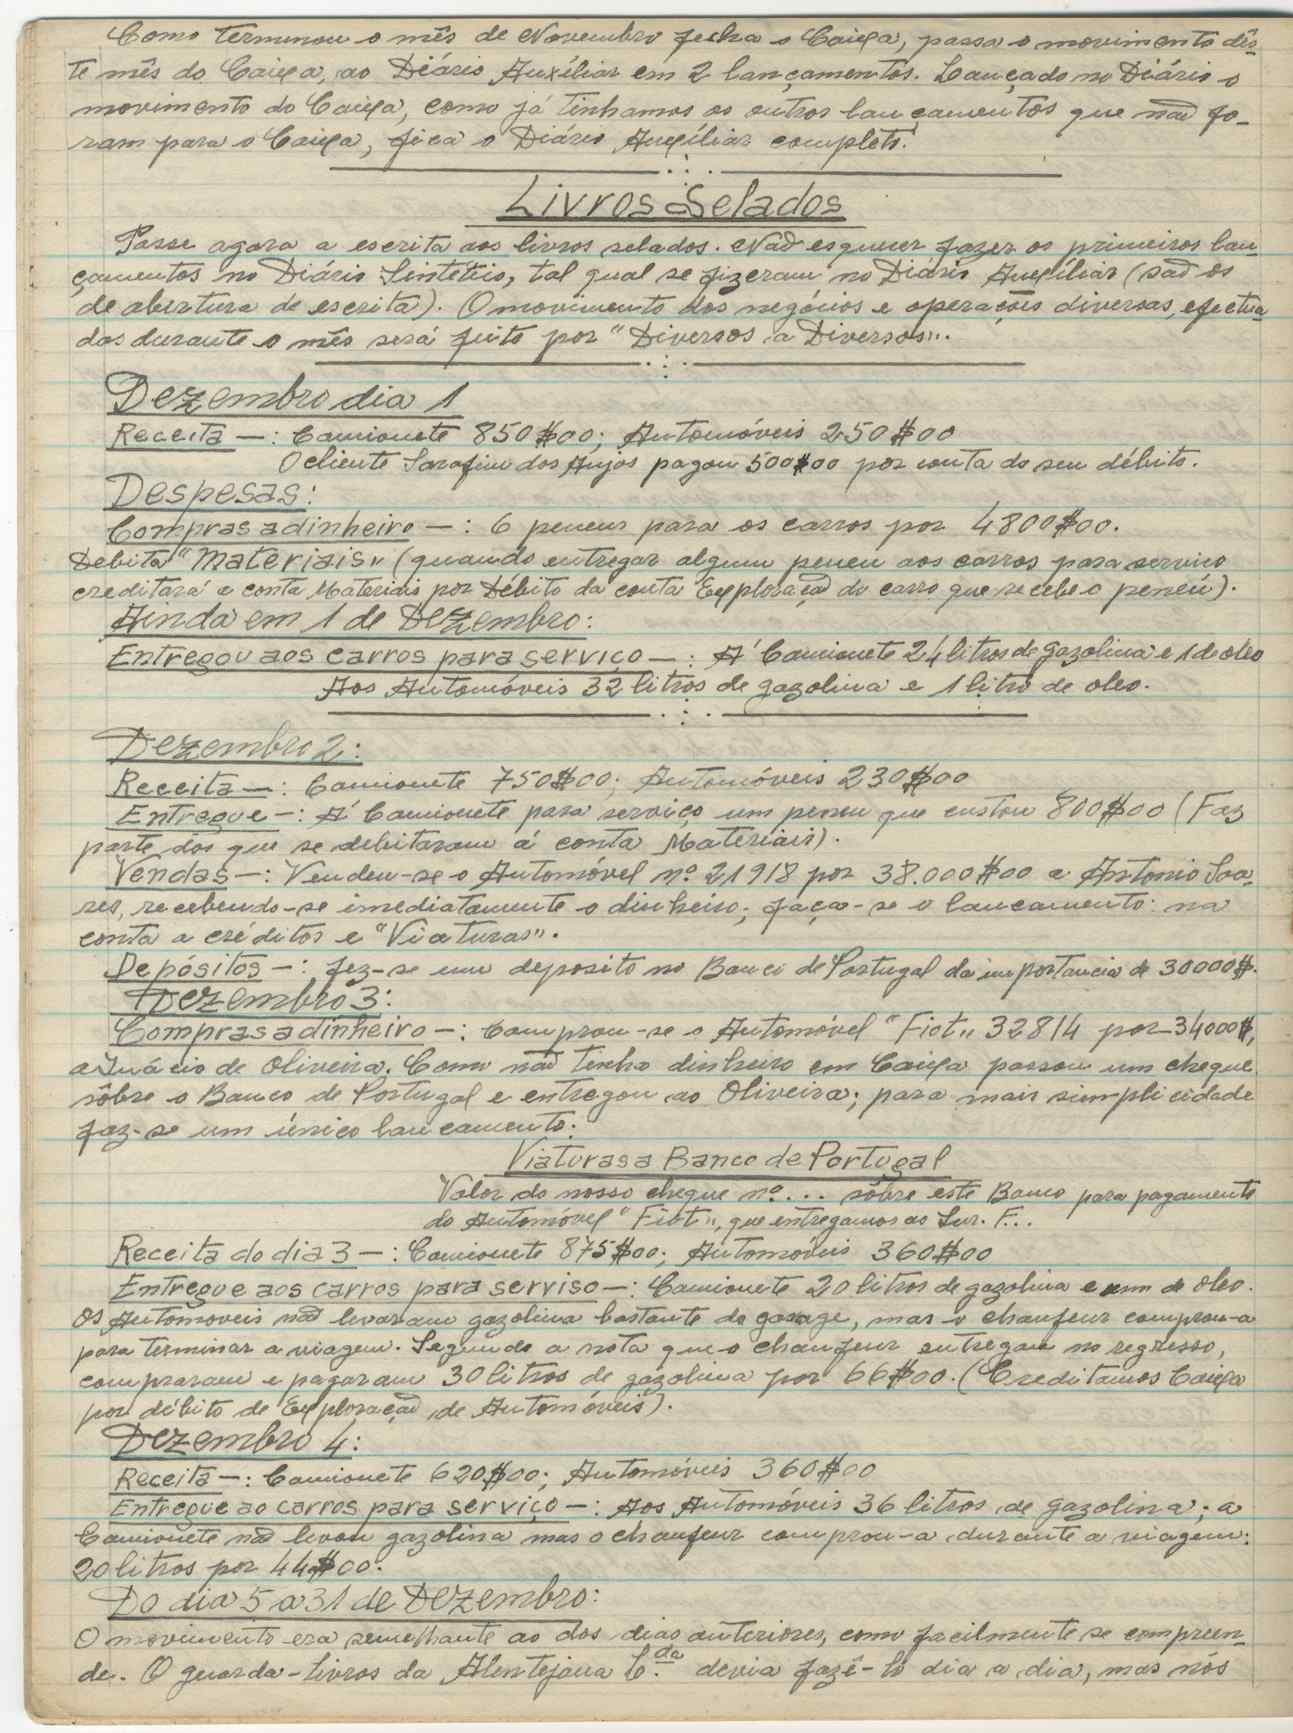 Como terminou o mês de Novembro fecha o Caixa, passa o movimento dês-
te mês do Caixa, ao Diário Auxíliar em 2 lançamentos. Lançado no Diário o
movimento do Caixa, como já tinhamos os outros lancamentos que não fo-
ram para o Caixa, fica o Diário Auxíliar completo.
Livros Selados
Passe agora a escrita aos livros selados. Não esquecer fazer os primeiros lan-
çamentos no Diário Sintético, tal qual se fizeram no Diário Auxíliar (são os
de abertura de escrita). O movimento dos negócios e operações diversas, efectua-
dos durante o mês será feito por "Diversos a Diversos".
Dezembro dia 1
Receita —: Camionete 850$00; Automóveis 250$00
O cliente Sarafim dos Anjos pagou 500$00 por conta do seu débito.
Despesas:
Compras a dinheiro —: 6 peneus para os carros por 4800$00.
Debita "Materiais" (quando entregar algum peneu aos carros para serviço
creditará a conta Materiais por Débito da conta Exploração do carro que recebe o peneu).
Ainda em 1 de Dezembro:
Entregou aos carros para servico —: Á Camionete 24 litros de gazolina e 1 de oleo
Aos Automóveis 32 litros de gazolina e 1 litro de oleo.
Dezembro 2:
Receita —: Camionete 750$00; Automóveis 230$00
Entregue —: Á Camionete para serviço um peneu que custou 800$00 (Faz
parte dos que se debitaram á conta Materiais).
Vendas —: Vendeu-se o Automóvel nº 21918 por 38.000$00 a Antonio Soa-
res, recebendo-se imediatamente o dinheiro; faça-se o lancamento: na
conta a créditos e "Viaturas".
Depósitos —: fez-se um deposito no Banco de Portugal da importancia de 30000$.
Dezembro 3:
Compras a dinheiro —: Comprou-se o Automóvel "Fiot" 32814 por 34000$,
a Inácio de Oliveira. Como não tinha dinheiro em Caixa passou um cheque
sôbre o Banco de Portugal e entregou ao Oliveira; para mais simplicidade
faz-se um único lancamento:
Viaturas a Banco de Portugal
Valor do nosso cheque nº... sôbre este Banco para pagamento
do Automóvel "Fiot", que entregamos ao Snr. F...
Receita do dia 3 —: Camionete 875$00; Automóveis 360$00
Entregue aos carros para serviso —: Camionete 20 litros de gazolina e um de oleo.
Os Automoveis não levaram gazolina bastante da garage, mas o chaufeur comprou-a
para terminar a viagem. Segundo a nota que o chaufeur entregou no regresso,
compraram e pagaram 30 litros de gazolina por 66$00. (Creditamos Caixa
por débito de Exploração de Automóveis).
Dezembro 4:
Receita —: Camionete 620$00; Automóveis 360$00
Entregue ao carros para serviço —: Aos Automóveis 36 litros de gazolina; a
Camionete não levou gazolina mas o chaufeur comprou-a durante a viagem:
20 litros por 44$00.
Do dia 5 a 31 de Dezembro:
O movimento era semelhante ao dos dias anteriores, como facilmente se compreen-
de. O guarda-livros da Alentejana C.da devia fazê-lo dia a dia, mas nós